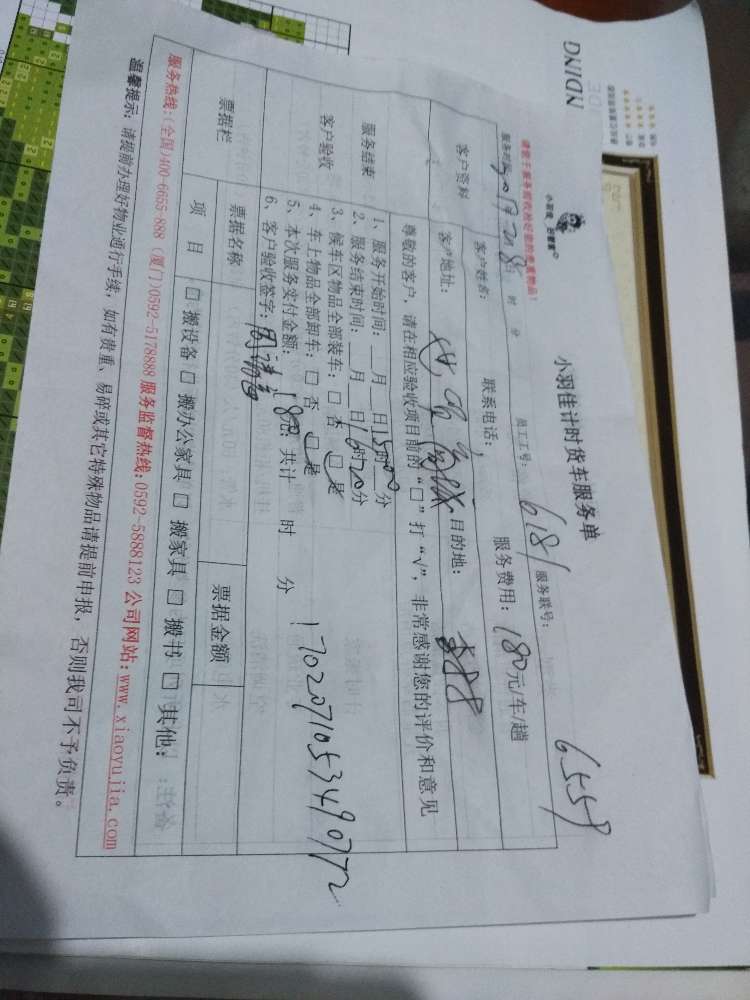 小羽佳计时货车服务单
小羽佳 好管家
员工工号: 6181 服务联号: 6559
请您于服务前收拾好您的贵重物品!
服务时间: 时 分
服务费用: 180元/车/趟
客户资料
客户姓名: 联系电话:
客户地址: 目的地:
尊敬的客户, 请在相应验收项目前的“□”打“√”, 非常感谢您的评价和意见
服务结束
客户验收
1、服务开始时间: 月 日15时00分
2、服务结束时间: 月 日16时20分
3、候车区物品全部装车: □ 否 □ 是
4、车上物品全部卸车: □ 否 □ 是
5、本次服务实付金额: 180元; 共计 时 分
6、客户验收签字:
1702071053490772
票据栏 票据名称 票据金额
项 目 □ 搬设备 □ 搬办公家具 □ 搬家具 □ 搬书 □ 其他:
服务热线:(全国)400-6655-888 (厦门)0592-5178888 服务监督热线:0592-5888123 公司网站:www.xiaoyujia.com
温馨提示: 请提前办理好物业通行手续, 如有贵重、易碎或其它特殊物品请提前申报, 否则我司不予负责。